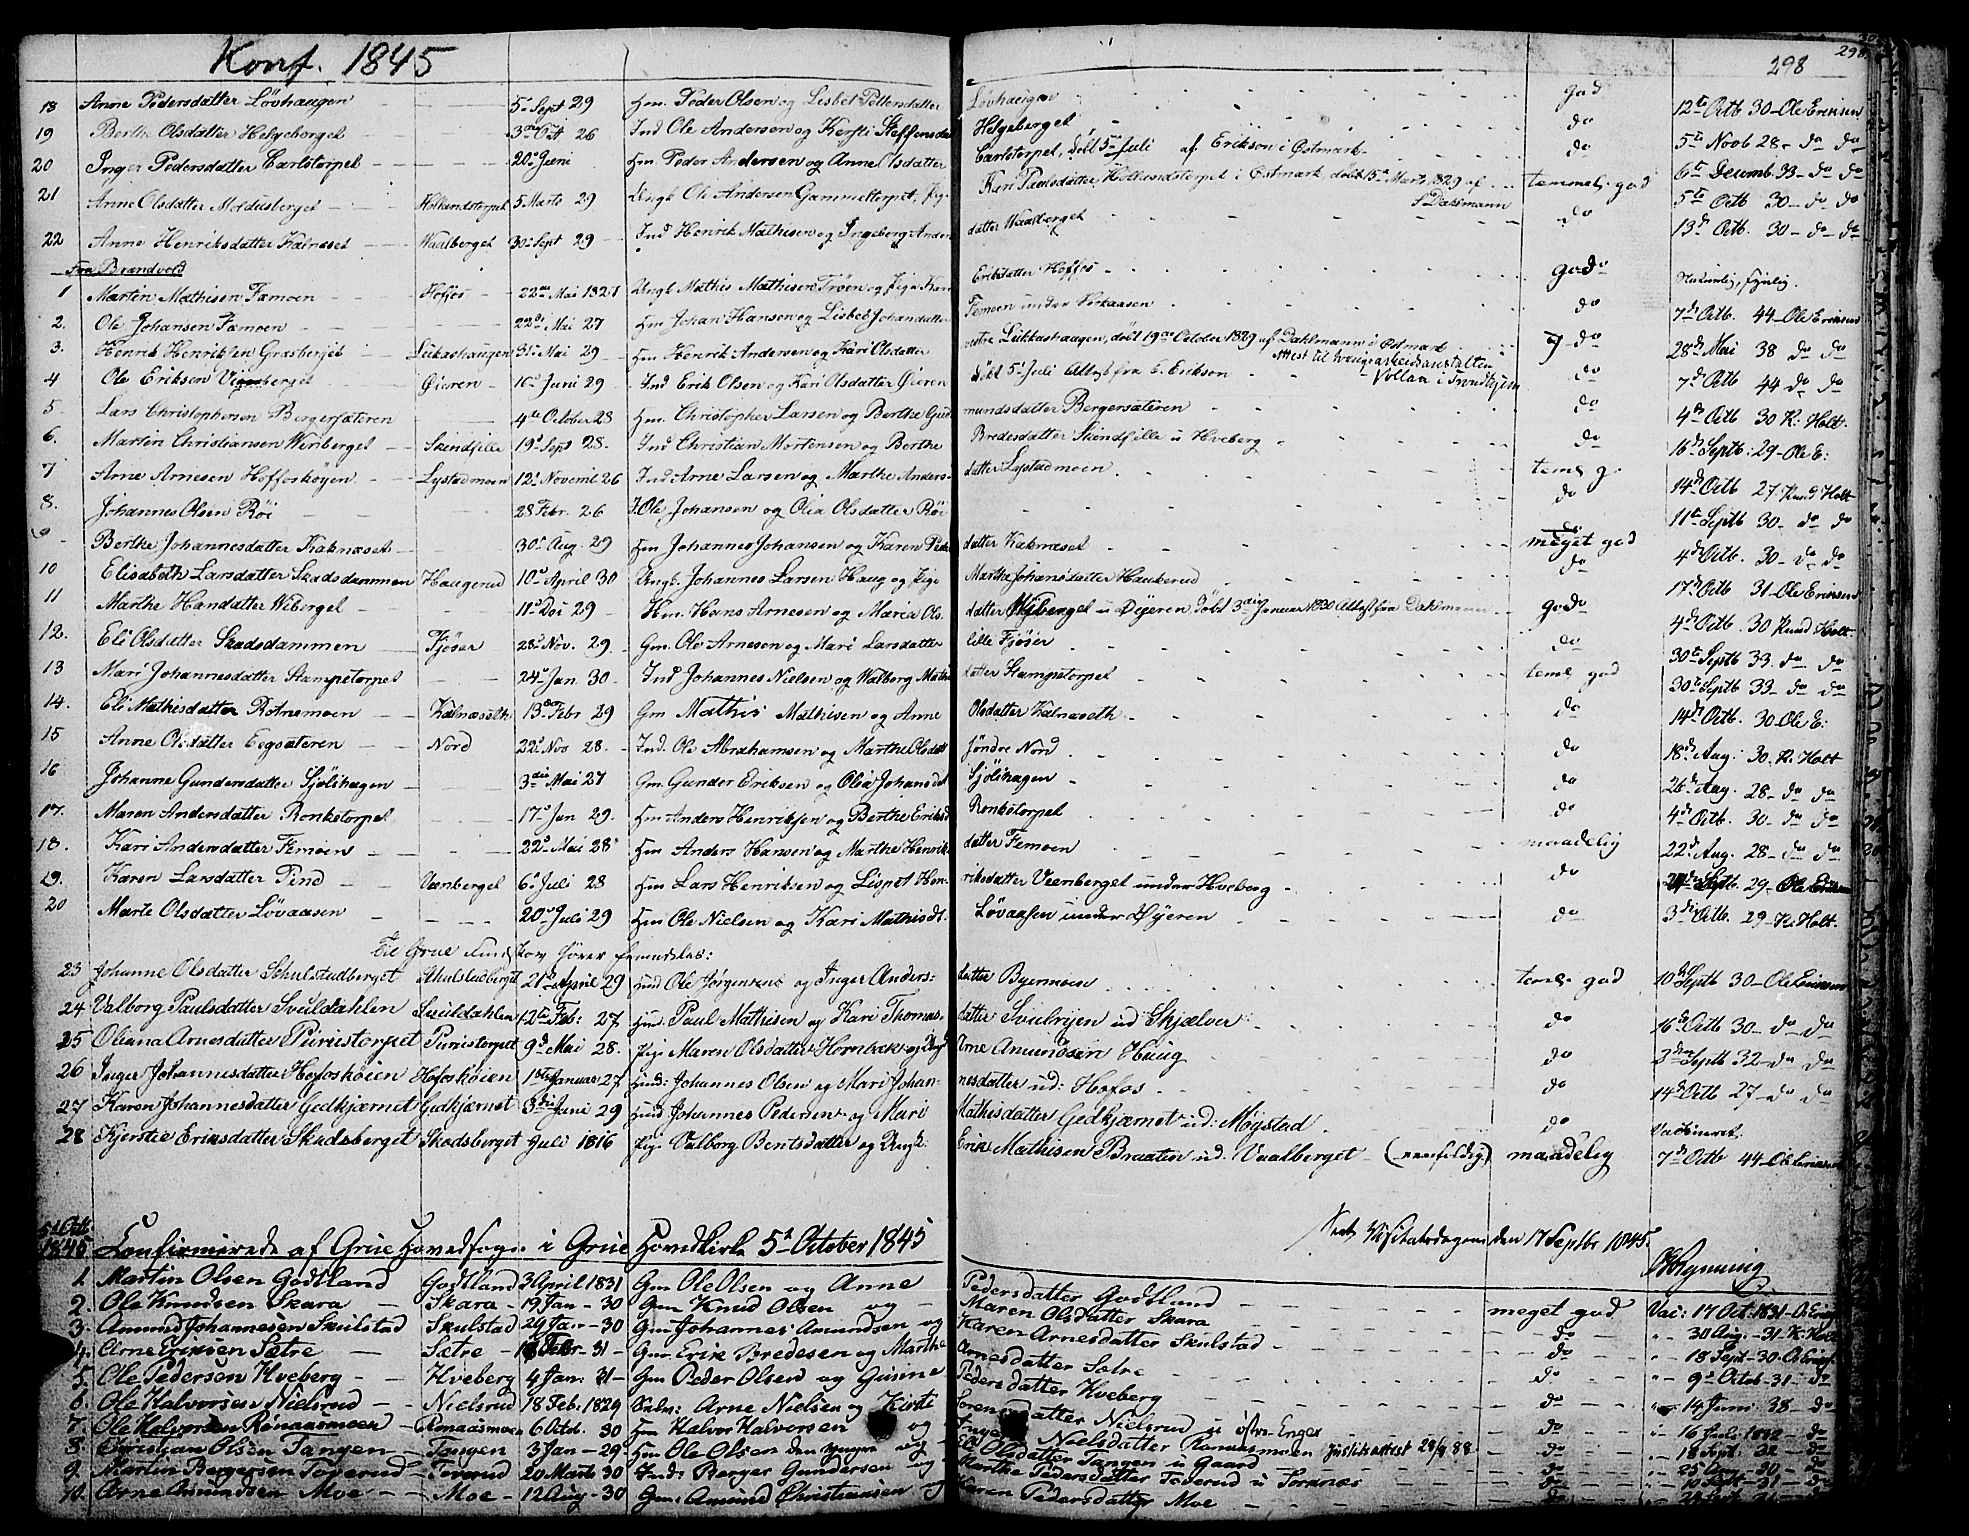 Konf. 1845
298
18 Anne Pedersdatter Løvhaugen 5 Sept 29 Hm. Peder Olsen og Lisbet Pettersdatter Løvhaugen god 12te Octb 30 Ole Eriksen
19 Berthe Olsdatter Helgeberget 3 Oct 26 Ind Ole Andersen og Kersti Steffensdatter Helgeberget do 5te Novb 28 do do
20 Inger Pedersdatter Carlstorpet 20 Juni Hm Peder Andersen og Anne Olsdatter Carlstorpet, døbt 5 Juli af Erikson i Østmark do 6te Decemb. 33 do do
21 Anne Olsdatter Moldusberget Hollandstorpet 5 Marts 29 Ungk Ole Andersen Gammeltorpet, Pige Kari Paulsdatter, Hollandstorpet i Østmark døbt 15 Marts 1829 af temmelig god 5te Octb 30 do do
S Dahlmann
22 Anne Henriksdatter Kalnæset Waalberget 30 Sept 29 Ind Henrik Mathisen og Ingeborg Anders datter Waalberget do 13d Octb. 30 do do
Fra Brandvold
1 Martin Mathisen Famoen Hoffos 22 Mai 1827 Ungk Mathis Mathisen Troen og Pige Kari Eriksdatter Hoffos god
2. Ole Johansen Famoen 22 Mai 27 Hm Johan Hansen og Lisbet Johansdatter Femoen under do 7d Octb. 44 Ole Eriksen
3. Henrik Henriksen Græsberget Leikashaugen 31 Mai 29 Hm Henrik Andersen og Kari Olsdatter vestre Leikashaugen, døbt 19 October 1829 af Dahlmann i Østmark do 28d Mai 38 do do
4 Ole Eriksen Vigeberget Øieren 10 Juni 29 Ind Erik Olsen og Kari Olsdatter Øieren Døbt 5 Juli Attest fra E. Erikson do 7d Octb 44 do do
Attest til tvangsarbeidsanstalten
Vollan i Trondhjem
5. Lars Christophersen Bergersæteren 4 October 28 Hm. Christopher Larsen og Berthe Gud mundsdatter Bergersæteren do 4de Octb. 30 K. Holt.
6. Martin Christiansen Wiriberget Skindfille 19 Sept 28. Ind Christian Mortensen og Berthe Bredesdatter Skindfille u Hveberg do 16d Septb: 29 Ole E:
7 Arne Arnesen Hoffoskøyen Lystadmoen 12 Novemb. 26 Ind Arne Larsen og Marthe Anders- datter Lystadmoen teml g. 14d Octb 27. Knud Holt
8. Johannes Olsen Røi 28 Febr. 26 J. Ole Johansen og Olia Olsdatter Røi do 11te Septb 30 do do
9 Berthe Johannesdatter Kalnæset 30 Aug. 29 Hm Johannes Johansen og Karen Peders datter Kalnæset meget god 4d Octb. 30 do do
10 Elisabeth Larsdatter Skadsdammen Haugerud 10 April 30 Ungk. Johannes Larsen Haug og Pige Marthe Johansdatter Haukerud do 17d Octb 31 Ole Eriksen
11 Marthe Handatter Wiberget 11 Dec 29 Hm. Hans Arnesen og Maria Ols. datter Wiberget u Øyeren Døbt 3die Januar 1830 Attest fra Dahlmann god 4d Octb. 30 Knud Holt
12. Eli Olsdatter Skadsdammen Fjøser 28 Nov. 29 Gm. Ole Arnesen og Mari Larsdatter lille Fjøser do 30te Septb 33. do do
13 Mari Johannesdatter Stampetorpet 24 Jan 30 Ind Johannes Nielsen og Walborg Mathis datter Stampetorpet teml god 30te Septb 33 do do
14. Eli Mathisdatter Rotnemoen Kalnæseth 13 Febr 29 Gm Mathis Mathisen og Anne Olsdatter Kalnæseth do 14d Octb. 30 Ole E:
15 Anne Olsdatter Nord 22 Nov 28. Ind. Ole Abrahamsen og Marthe Olsdatt Søndre Nord do 18d Aug. 30. K. Holt
16 Johanne Gundersdatter Sjølihagen 3die Mai 27 Gm Gunder Eriksen og Olia Johansdat Sjølihagen do 26d Aug. 28 do do
17. Maren Andersdatter Ronkstorpet 17 Jan 29. Hm Anders Henriksen og Berthe Eriksd Ronkstorpet do 4d Octb. 30 do do
18. Kari Andersdatter Femoen 22 Mai 28 Hm Anders Hansen og Marthe Henriks datter Femoen maadelig 22d Aug. 28 do do
19. Karen Larsdatter Tind Venberget 6 Juli 28 Hm Lars Henriksen og Lispet Hen- riksdatter Venberget under Hveberg do Septb. 29 Ole Eriksen
20 Marte Olsdatter Løvaasen 20 Juli 29 Hm Ole Nielsen og Kari Mathisdt. Løvaasen under Øyeren do 3die Octb. 29 K. Holt.
Til Grue hører fremdeles:
23 Johanne Olsdatter Schulstadberget Skulstadberget 21 April 29 Hmd Ole Jørgensen og Inger Anders: datter Byermoen teml god 10d Septb 30 Ole Eriksen
24 Valborg Paulsdatter Svuldahlen Svuldahlen 12te Feb: 27 Hmd: Paul Mathisen og Kari Thomas- datter Svulryen ud Skjælver do 16d Octb 30 do do
25 Oliana Arnesdatter Puristorpet Puristorpet 9d Mai 28. Pige Maren Olsdatter Hornbæk og Ungk Arne Amundsen Haug do Septb 32 do do
26 Inger Johannesdatter Hofoskøien Hofoskøien 1ste Januar 27 Hmd: Johannes Olsen og Mari Johan- nesdatter ud: Hofos do 14d Octb 27 do do
27 Karen Johannesdatter Gedkjærnet Gedkjærnet 3die Juni 29 Hmd Johannes Pedersen og Mari Mathisdatter Gedkjærnet ud: Møystad do
28 Kjerstie Eriksdatter Skadsberget Skadsberget Juli 1816 Pige Valborg Bentsdatter og Ungk: Erik Mathisen Braaten ud. Vaalberget (eenfoldig) maadelig 7d Octb 44 Ole Eriksen
Visitatsdagen den 17 Septbr 1845.
1845 Confirmerede af Grue Hovedsogn i Grue Hovedkirke 5t October 1845
1. Martin Olsen Godtland Godtland 3 April 1831 Gm Ole Olsen og Anne Pedersdatter Godtlund meget god Vac: 17 Oct. 1831
2. Ole Knudsen Skara Skara 19 Jan 30 Gm Knud Olsen og Maren Olsdatter Skara do 30 Aug. 31. K. Holt
3. Amund Johannesen Skulstad Skulstad 29 Jan 30 Gm Johannes Amundsen og Karen Arnesdatter Skulstad do 18 Sept. 30
4. Arne Eriksen Sætre Sætre Febr. 31 Gm Erik Bredesen og Marthe Arnesdatter Sætre do 9d Octb 31. do
5. Ole Pedersen Hveberg Hveberg 4 Jan: 31 Gm Peder Olsen og Gunine Pedersdatter Hveberg do 14 Juni 38 do
6. Ole Halvorsen Nielsrud Nielsrud 18 Feb. 1829 Arne Nielsen og Kirsti Sørensdatter Nielsrud u østre Enger do
7. Ole Halvorsen Rønaasmoen Rønaasmoen 6 Octd. 30 Hm Halvor Halvorsen og Nielsdatter Rønaasmoen Justitsattest 28/9 88 do
8. Christian Olsen Tangen Tangen 3 Jan 29 Hm Ole Olsen den yngre og Eli Olsdatter Tangen u Gaard do
9. Martin Bergersen Toverud Toverud 20 Marts 30 Ind: Berger Gundersen og Marthe Pedersdatter Toverud u Tornæs do
10. Arne Amundsen Moe Moe 12 Aug 30 Gm: Amund Christiansen og Karen Pedersdatter Moe do